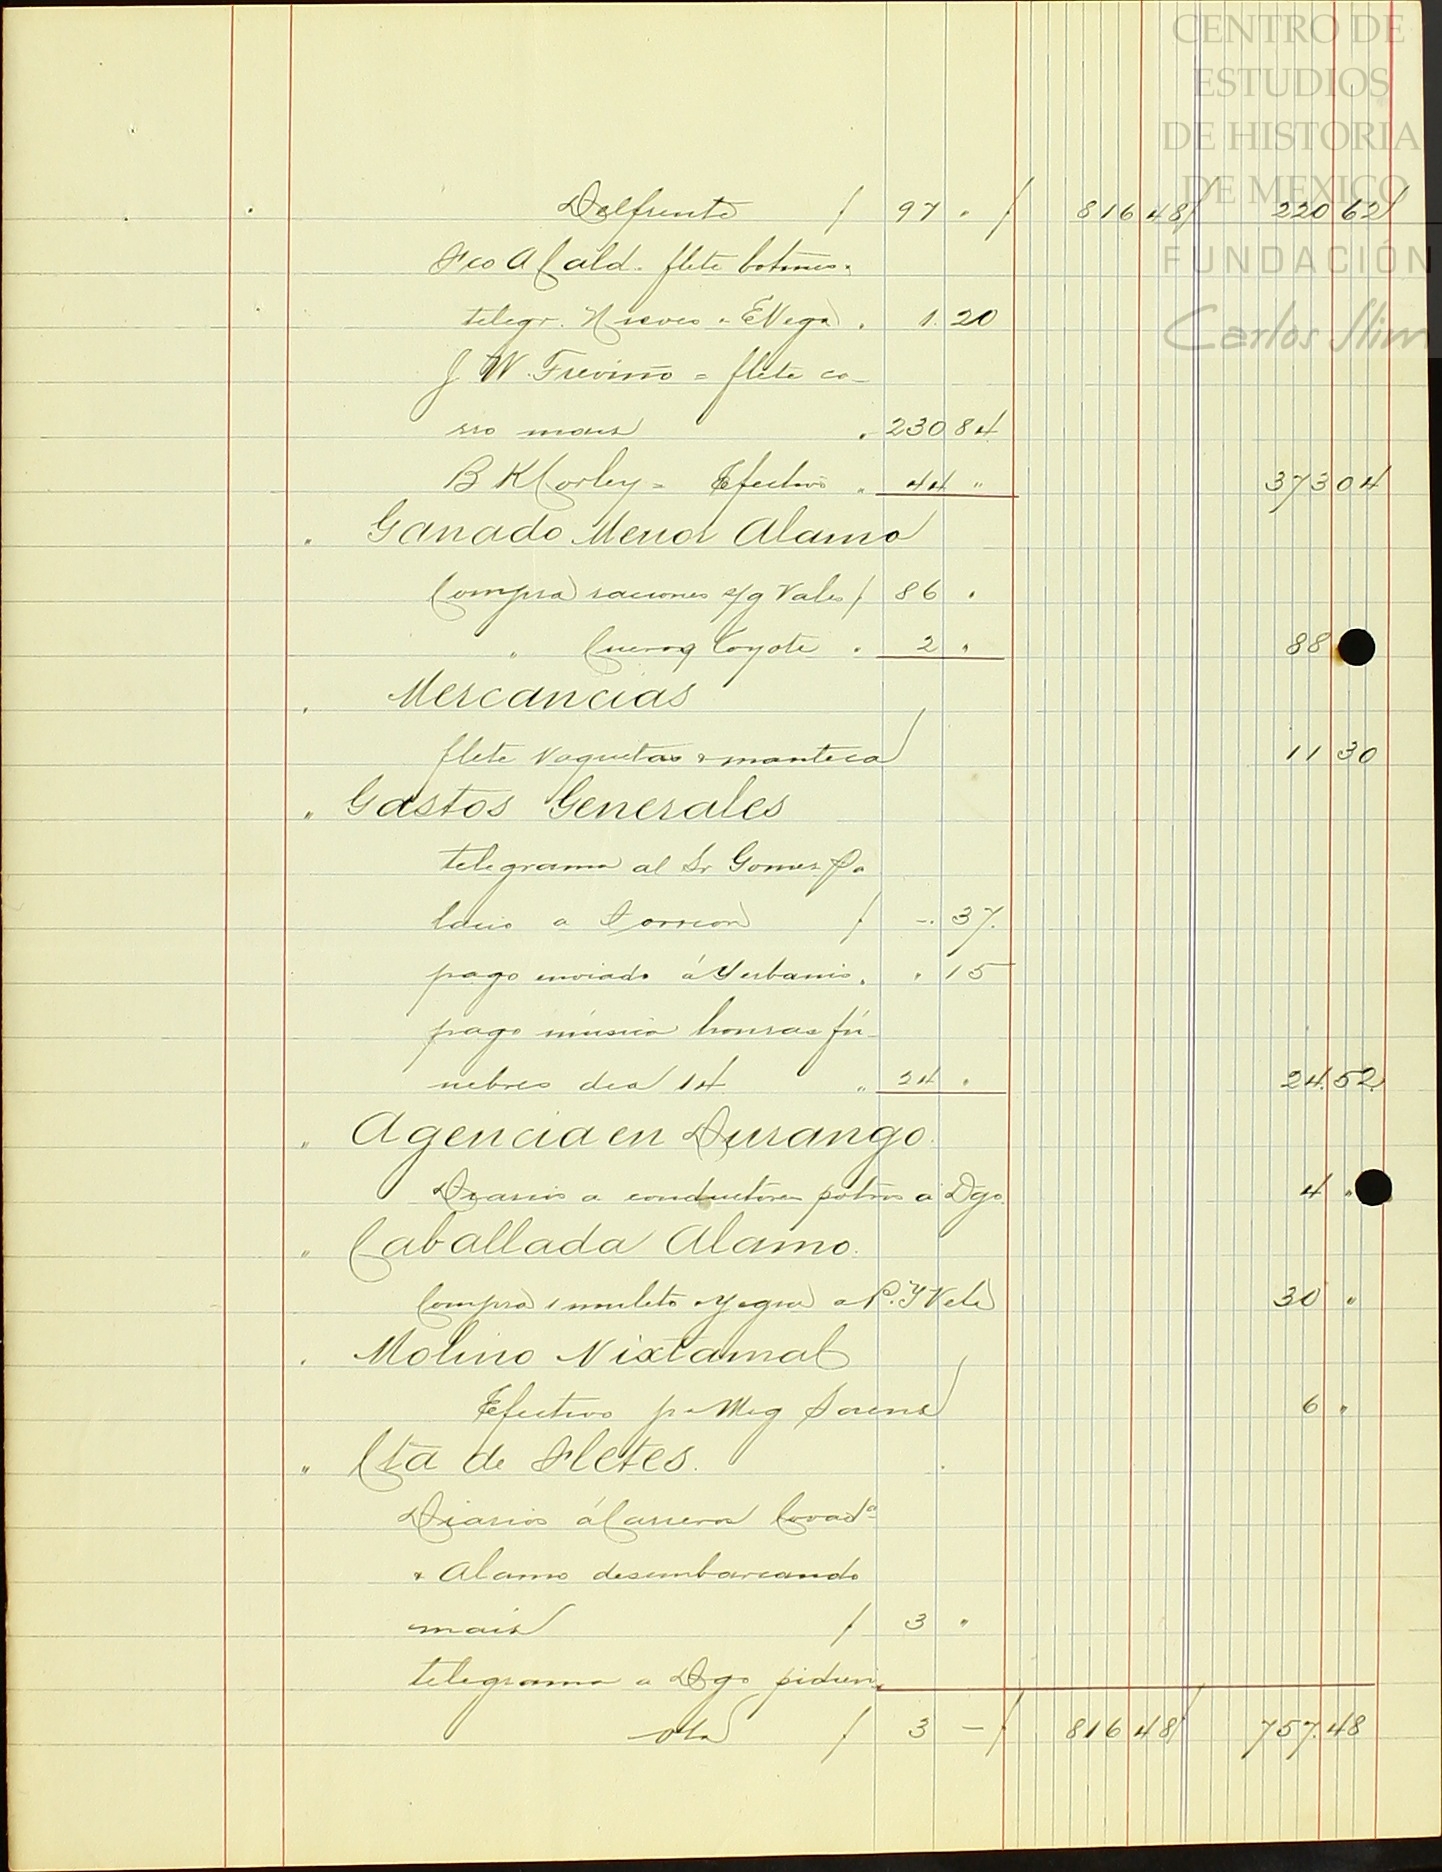 CENTRO DE
ESTUDIOS
DE HISTORIA
DE MEXICO
FUNDACIÓN
Carlos Slim
Delfrente / 97 " / 816 48/ 220 62/
Fco A Cald. flete
telegr. Nieves a E Vega . 1. 20
J. W. Treviño = flete ca-
rro mais . 230 84
B K Corley = Efectivo " 44 " 373 04
" Ganado Menor Alamo
Compra raciones s/g Vales / 86 .
" Cueros Coyote . 2 " 88
. Mercancias
flete Vaquetas & manteca 11 30
" Gastos Generales
telegrama al Sr Gomez Pa
lacio a Torreon / -. 37.
pago enviado á Yerbanis . . 15
pago música honras fú-
nebres dia 14 " 24 . 24.52
" Agencia en Durango.
Diarios a conductores potros a Dgo. 4 "
" Caballada Alamo.
Compra 1 muleto a P. Y Vela 30 "
. Molino Nixtamal
Efectivo pa Mig Saens 6 "
" Cta de Fletes.
Diarios á Carreros Covada
& Alamo desembarcando
mais / 3 "
telegrama a Dgo
/ 3 - / 816 48/ 757.48